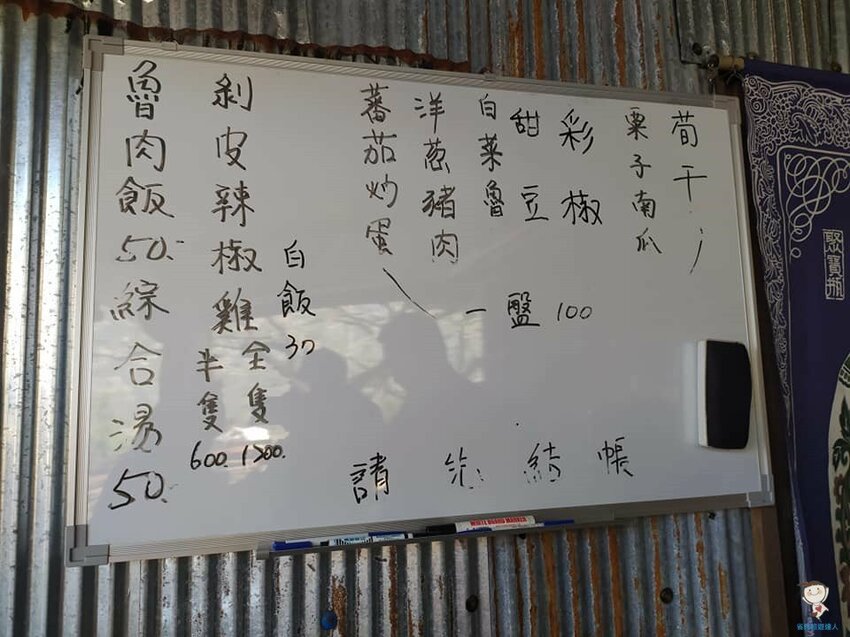 魯肉飯50.
綜合湯50.
剝皮辣椒雞
半隻600.
全隻1200.
白飯30
蕃茄炒蛋
洋葱豬肉
白菜魯
甜豆
彩椒
栗子南瓜
荀干
一盤100
請先結帳
WHITE BOARD MARKER
聚寶瓶